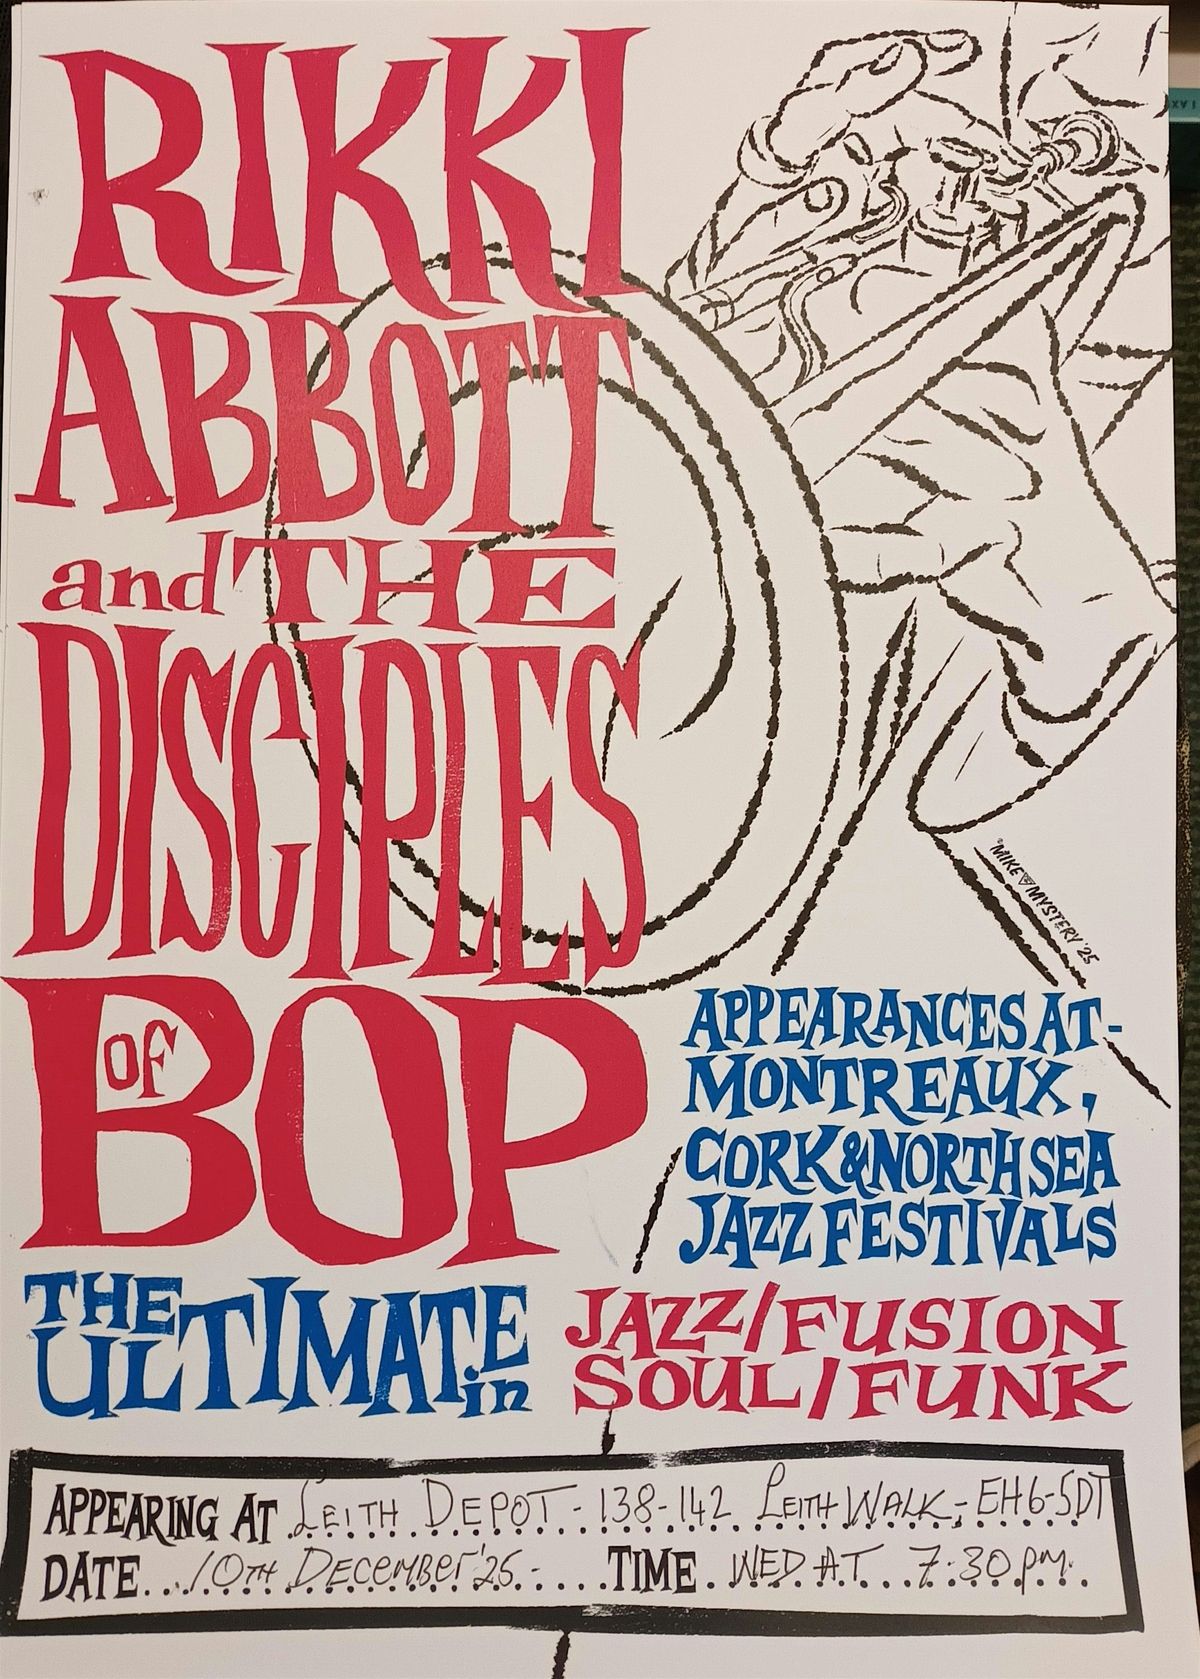 RIKKI
ABBOTT
and THE
DISCIPLES
OF BOP
'MIKE MYSTERY '25
APPEARANCES AT-
MONTREAUX,
CORK & NORTH SEA
JAZZ FESTIVALS
THE
ULTIMATE in
JAZZ/FUSION
SOUL/FUNK
APPEARING AT LEITH DEPOT - 138-142 LEITH WALK, EH6-5DT
DATE 10TH DECEMBER '25- TIME WED AT 7.30pm.